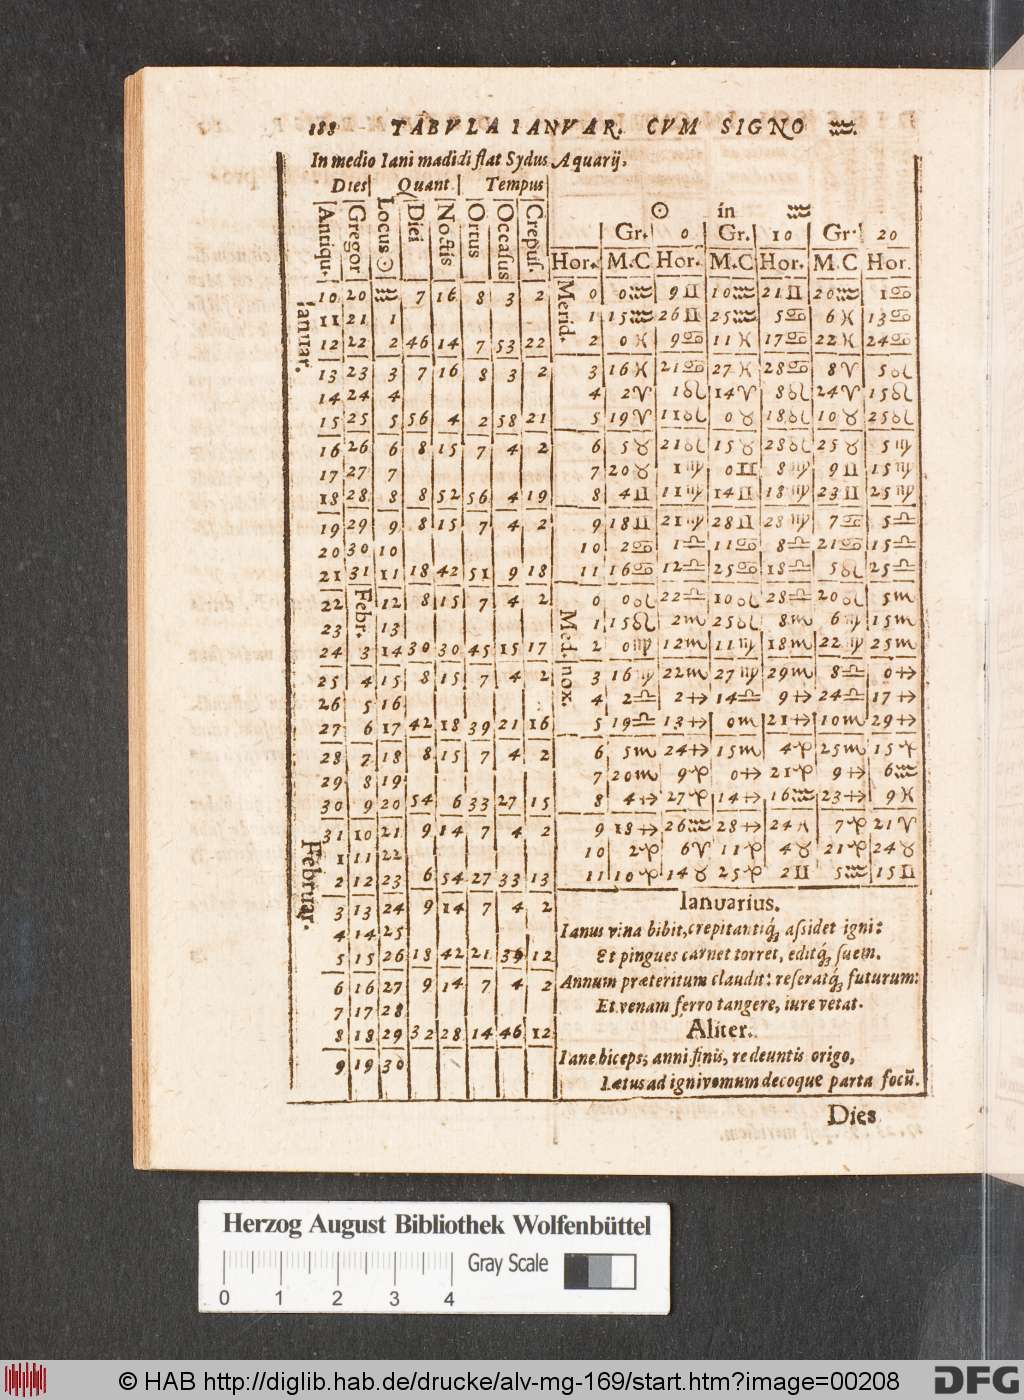 188 TABVLA IANVAR. CVM SIGNO ♒.
In medio Iani madidi flat Sydus Aquarij.
Dies Quant Tempus
Antiqu. Gregor Locus ☉ Diei Noctis Ortus Occasus Crepus.
Ianuar.
10 20 ♒ 7 16 8 3 2
11 21 1
12 22 2 46 14 7 53 22
13 23 3 7 16 8 3 2
14 24 4
15 25 5 56 4 2 58 21
16 26 6 8 15 7 4 2
17 27 7
18 28 8 8 52 56 4 19
19 29 9 8 15 7 4 2
20 30 10
21 31 11 18 42 51 9 18
Febr.
22 12 8 15 7 4 2
23 13
24 3 14 30 30 45 15 17
25 4 15 8 15 7 4 2
26 5 16
27 6 17 42 18 39 21 16
28 7 18 8 15 7 4 2
29 8 19
30 9 20 54 6 33 27 15
31 10 21 9 14 7 4 2
Februar.
1 11 22
2 12 23 6 54 27 33 13
3 13 24 9 14 7 4 2
4 14 25
5 15 26 18 42 21 39 12
6 16 27 9 14 7 4 2
7 17 28
8 18 29 32 28 14 46 12
9 19 30
☉ in ♒
Gr. 0 Gr. 10 Gr. 20
Hor. M.C Hor. M.C Hor. M C Hor.
Merid.
0 0♒ 9♊ 10♒ 21♊ 20♒ 1♋
1 15♒ 26♊ 25♒ 5♋ 6♓ 13♋
2 0♓ 9♋ 11♓ 17♋ 22♓ 24♋
3 16♓ 21♋ 27♓ 28♋ 8♈ 5♌
4 2♈ 1♌ 14♈ 8♌ 24♈ 15♌
5 19♈ 11♌ 0♉ 18♌ 10♉ 25♌
6 5♉ 21♌ 15♉ 28♌ 25♉ 5♍
7 20♉ 1♍ 0♊ 8♍ 9♊ 15♍
8 4♊ 11♍ 14♊ 18♍ 23♊ 25♍
9 18♊ 21♍ 28♊ 28♍ 7♋ 5♎
10 2♋ 1♎ 11♋ 8♎ 21♋ 15♎
11 16♋ 12♎ 25♋ 18♎ 5♌ 25♎
Med. nox.
0 0♌ 22♎ 10♌ 28♎ 20♌ 5♏
1 15♌ 2♏ 25♌ 8♏ 6♍ 15♏
2 0♍ 12♏ 11♍ 18♏ 22♍ 25♏
3 16♍ 22♏ 27♍ 29♏ 8♎ 0♐
4 2♎ 2♐ 14♎ 9♐ 24♎ 17♐
5 19♎ 13♐ 0♏ 21♐ 10♏ 29♐
6 5♏ 24♐ 15♏ 4♑ 25♏ 15♑
7 20♏ 9♑ 0♐ 21♑ 9♐ 6♒
8 4♐ 27♑ 14♐ 16♒ 23♐ 9♓
9 18♐ 26♒ 28♐ 24♓ 7♑ 21♈
10 2♑ 6♈ 11♑ 4♉ 21♑ 24♉
11 10♑ 14♉ 25♑ 2♊ 5♒ 15♊
Ianuarius.
Ianus vina bibit, crepitantiq́; assidet igni:
Et pingues carnet torret, editq́; suem.
Annum præteritum claudit: reseratq́; futurum:
Et venam ferro tangere, iure vetat.
Aliter.
Iane biceps, anni finis, redeuntis origo,
Lætus ad ignivomum decoque parta focũ.
Dies
Herzog August Bibliothek Wolfenbüttel
Gray Scale
0 1 2 3 4
© HAB http://diglib.hab.de/drucke/alv-mg-169/start.htm?image=00208
DFG